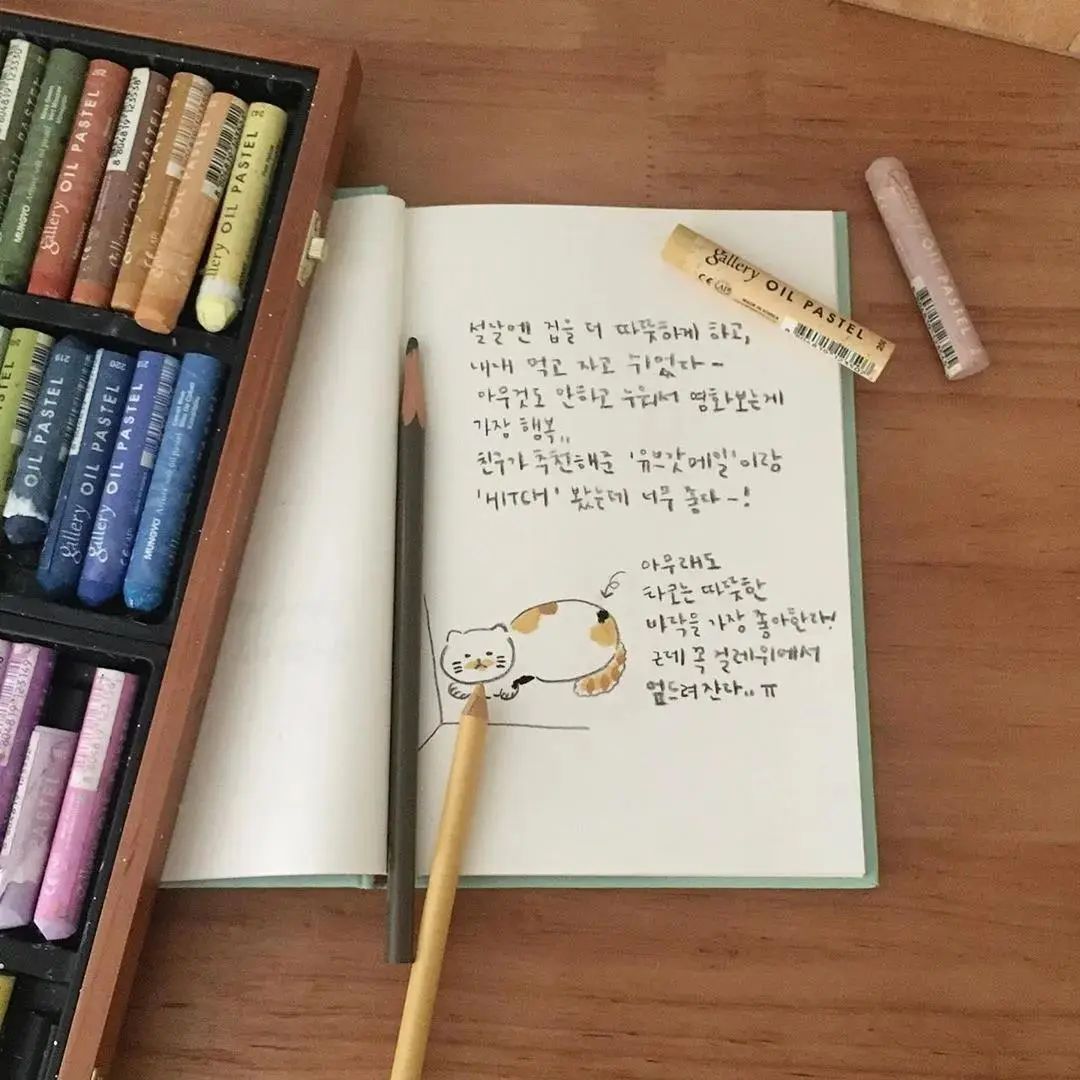 설날엔 집을 더 따뜻하게 하고,
내내 먹고 자고 쉬었다~
아무것도 안하고 누워서 영화보는게
가장 행복,,
친구가 추천해준 '유브갓메일'이랑
'HITCH' 봤는데 너무 좋다~!
아무래도
타로는 따뜻한
바닥을 가장 좋아한다!
근데 꼭 걸레위에서
엎드려잔다.. ㅠ
gallery OIL PASTEL
MADE IN KOREA
OIL PASTEL
MUNGYO
gallery OIL PASTEL
8 804819 123538
OIL PASTEL
OIL PASTEL
gallery OIL PASTEL
OIL PASTEL
gallery OIL PASTEL
gallery OIL PASTEL
MUNGYO
PASTEL